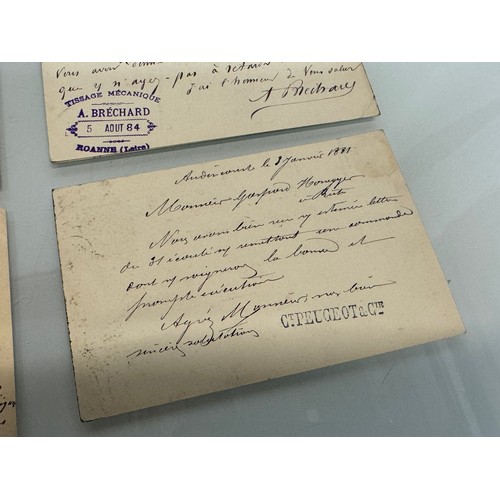 Vous avoir
que y n'ayez pas à
j'ai l'honneur de Vous saluer
A Bréchard
TISSAGE MÉCANIQUE
A. BRÉCHARD
5 AOUT 84
ROANNE (Loire)
Audincourt le 3 Janvier 1881
Monsieur Gaspard Honegger
à Rüti
Nous avons bien reçu v/ estimée lettre
du 31 écoulé n/ remettant une commande
dont n/ soignerons la bonne et
prompte exécution
Agréez Monsieur nos bien
sincères salutations
CS. PEUGEOT & CIE